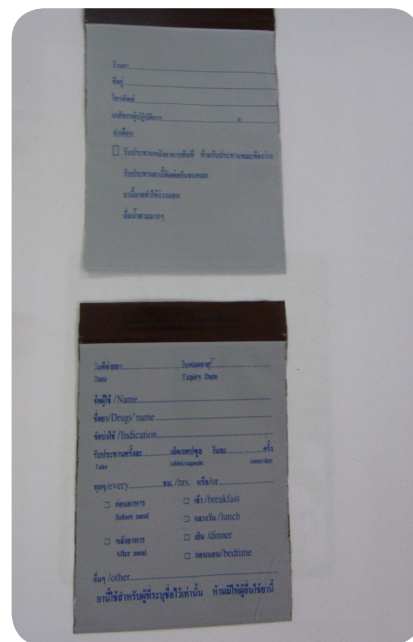 ร้านยา
ที่อยู่
โทรศัพท์
เภสัชกรผู้ปฏิบัติการ
คำเตือน
☐ รับประทานหลังอาหารทันที ห้ามรับประทานขณะท้องว่าง
รับประทานยานี้ติดต่อกันจนหมด
ยานี้อาจทำให้ง่วงนอน
ดื่มน้ำตามมากๆ
วันที่จ่ายยา วันหมดอายุ
Date Expiry Date
ชื่อผู้ใช้ /Name
ชื่อยา/Drugs'name
ข้อบ่งใช้ /Indication
รับประทานครั้งละ เม็ด/แคปซูล วันละ ครั้ง
Take tablet/capsule times/day
ทุกๆ/every ชม. /hrs. หรือ/or
☐ ก่อนอาหาร ☐ เช้า /breakfast
Before meal ☐ กลางวัน /lunch
☐ หลังอาหาร ☐ เย็น /dinner
After meal ☐ ก่อนนอน/bedtime
อื่นๆ /other
ยานี้ใช้สำหรับผู้ที่ระบุชื่อไว้เท่านั้น ห้ามมิให้ผู้อื่นใช้ยานี้